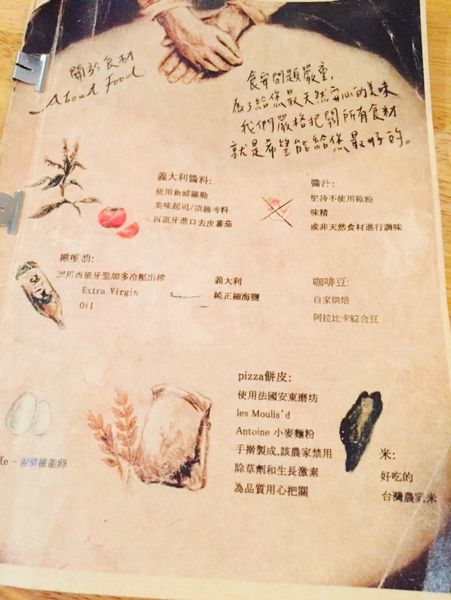 關於食材
About Food
食安問題嚴重,
為了給您最天然安心的美味
我們嚴格把關所有食材
就是希望能給您最好的。
義大利醬料:
使用新鮮羅勒
美味起司/頂級香料
西班牙進口去皮番茄
醬汁:
堅持不使用榖粉
味精
或非天然食材進行調味
橄欖油:
選用西班牙製加多冷壓出榨
Extra Virgin
Oil
義大利
純正細海鹽
咖啡豆:
自家烘焙
阿拉比卡綜合豆
pizza餅皮:
使用法國安東磨坊
les Moulis'd
Antoine 小麥麵粉
手擀製成,該農家禁用
除草劑和生長激素
為品質用心把關
米:
好吃的
台灣農家米